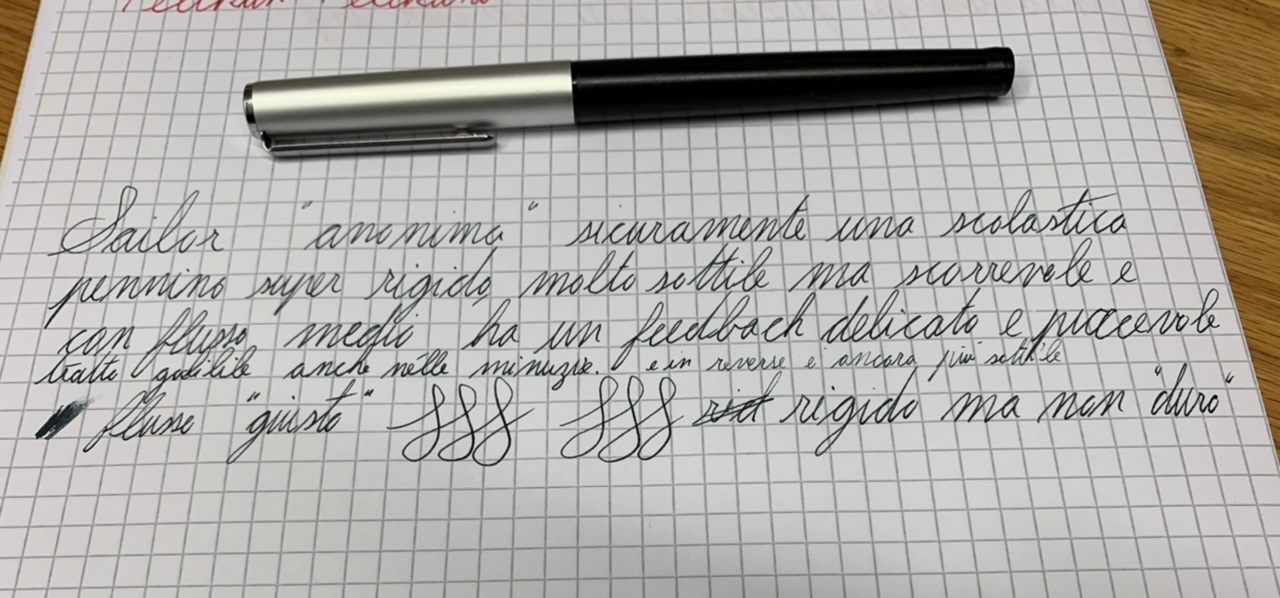 Pelikan Pelikano
Sailor "anonima" sicuramente una scolastica
pennino super rigido, molto sottile ma scorrevole e
con flusso medio ha un feedback delicato e piacevole
tratto godibile anche nelle minuzie. e in reverse è ancora più sottile
flusso "giusto" rigido ma non "duro"